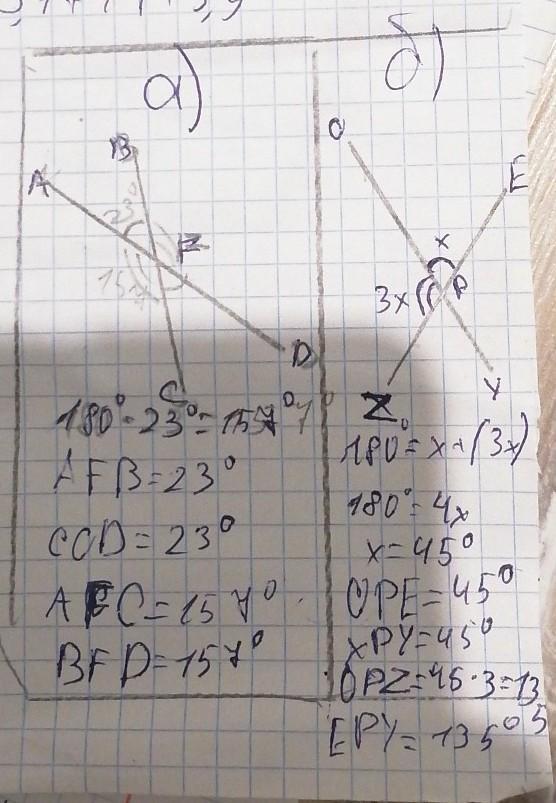 а)
B
A
23°
F
157
D
C
180° - 23° = 157°
AFB = 23°
CCD = 23°
AFC = 157°
BFD = 157°
б)
O
E
x
3x
P
Z
Y
180° = x + (3x)
180° = 4x
x = 45°
OPE = 45°
xPY = 45°
OPZ = 45 · 3 = 135
EPY = 135°